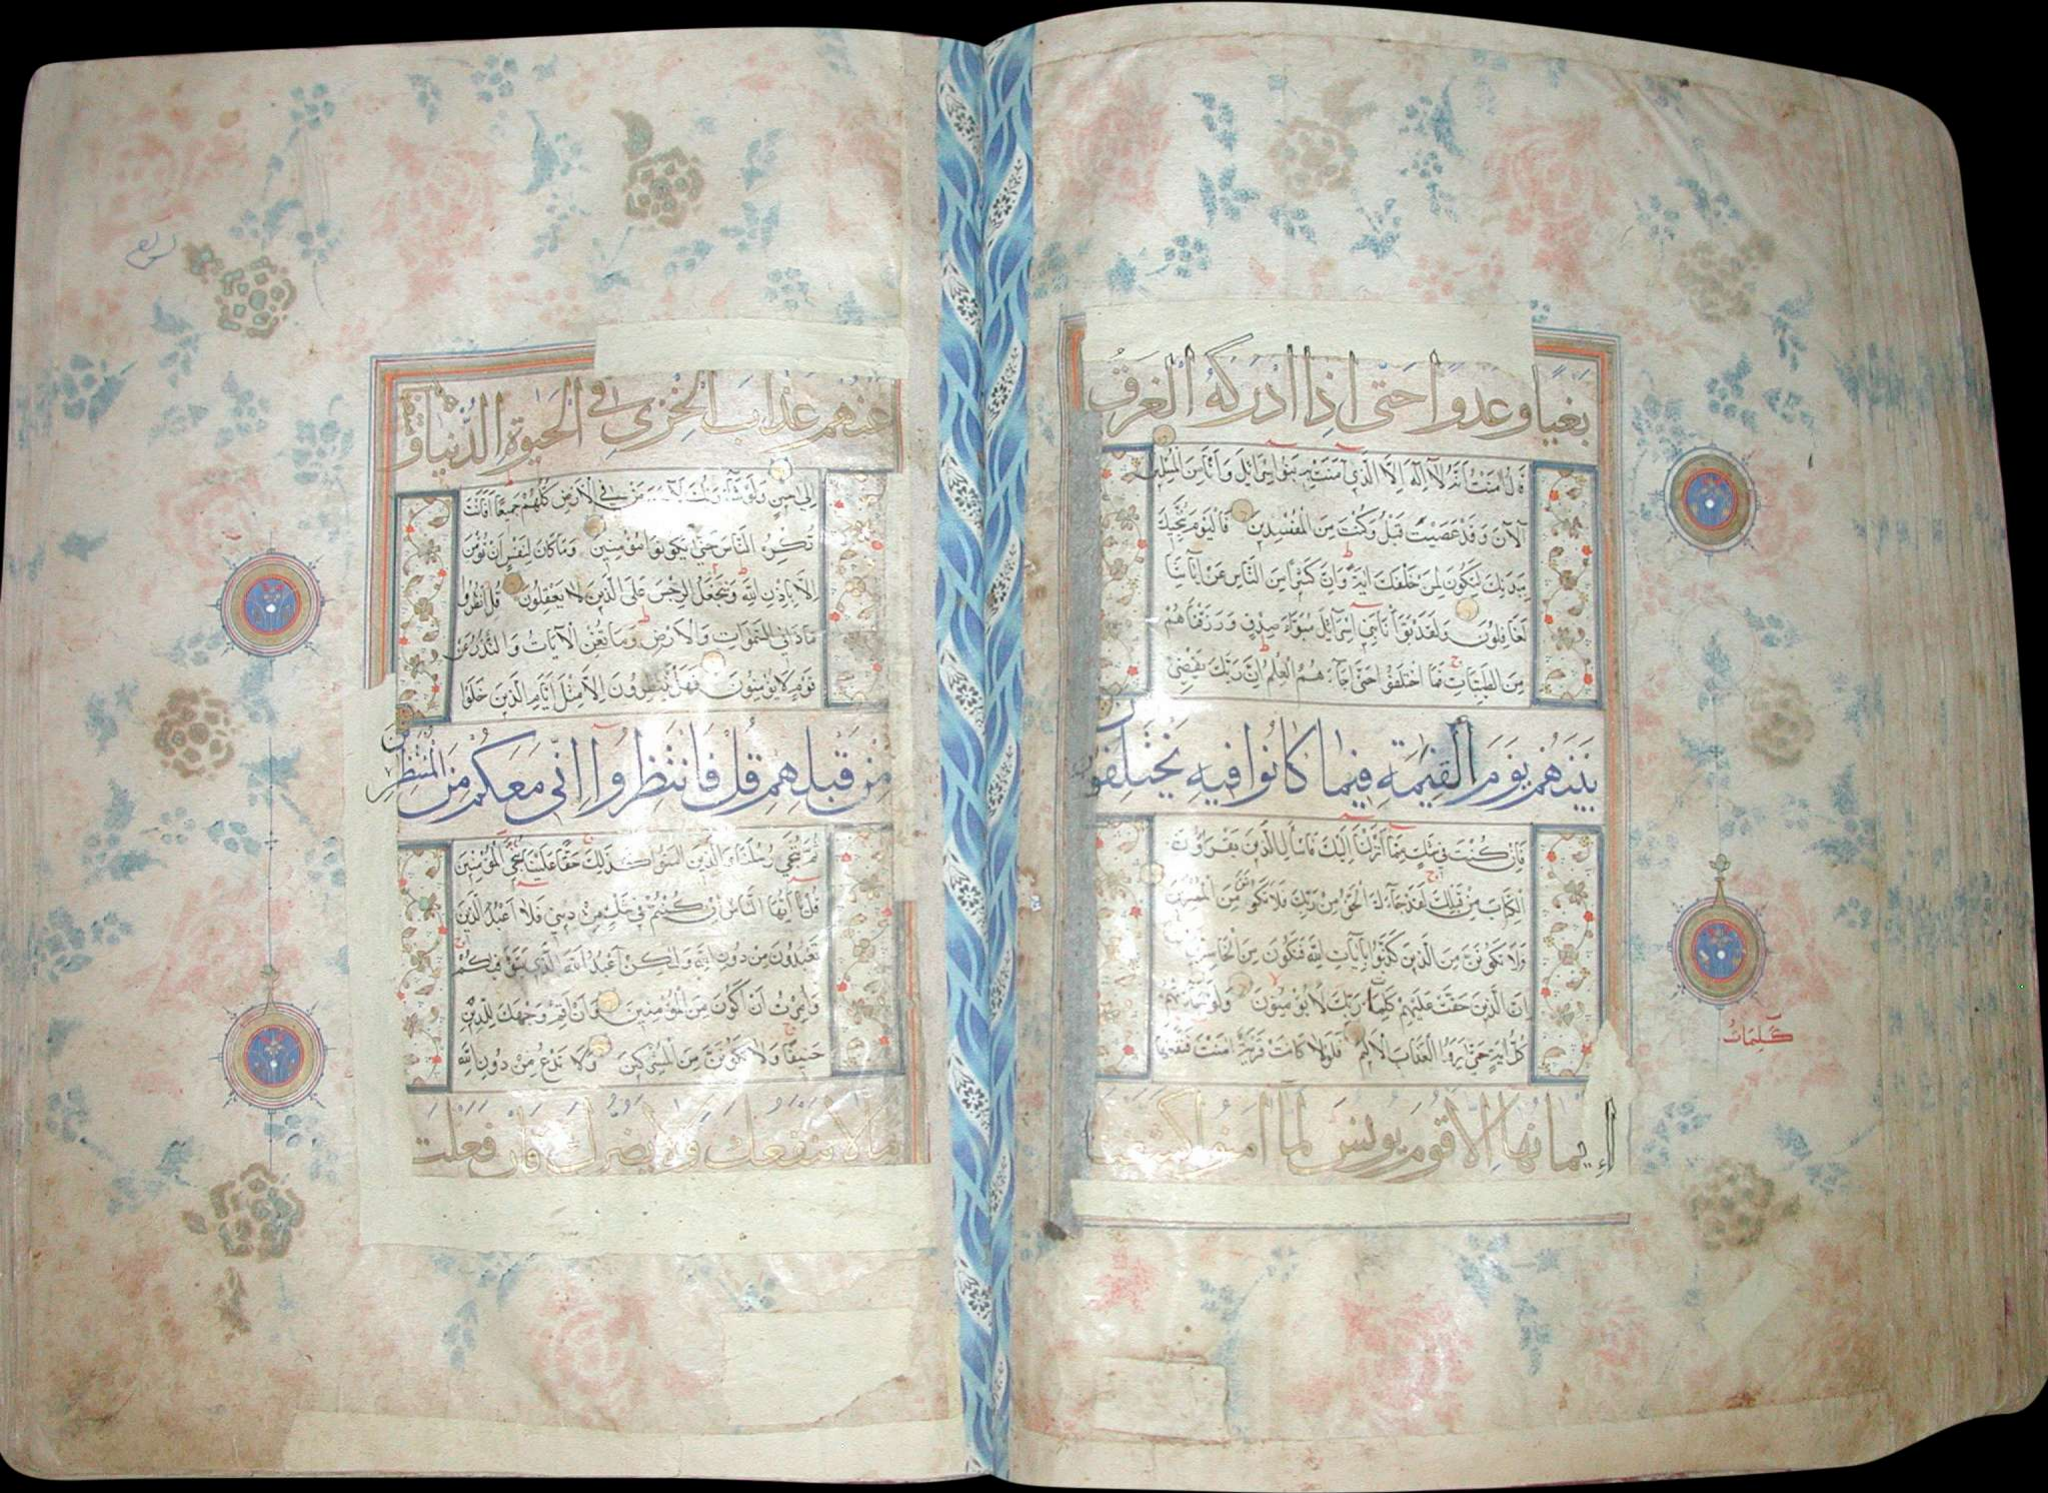 بغيا وعدوا حتى اذا ادركه الغرق
قال آمنت انه لا اله الا الذي آمنت به بنوا اسرائيل وانا من المسلمين
آلآن وقد عصيت قبل وكنت من المفسدين فاليوم ننجيك
ببدنك لتكون لمن خلفك اية وان كثيرا من الناس عن اياتنا
لغافلون ولقد بوأنا بني اسرائيل مبوأ صدق ورزقناهم
من الطيبات فما اختلفوا حتى جاءهم العلم ان ربك يقضي
بينهم يوم القيمة فيما كانوا فيه يختلفون
فان كنت في شك مما انزلنا اليك فاسأل الذين يقرؤن
الكتاب من قبلك لقد جاءك الحق من ربك فلا تكونن من الممترين
ولا تكونن من الذين كذبوا بآيات الله فتكون من الخاسرين
ان الذين حقت عليهم كلمات ربك لا يؤمنون ولو جاءتهم
كل اية حتى يروا العذاب الاليم فلولا كانت قرية امنت فنفعها
إيمانها الا قوم يونس لما امنوا كشفنا
كلمات
عنهم عذاب الخزي في الحيوة الدنيا ومتعناهم
الى حين ولو شاء ربك لآمن من في الارض كلهم جميعا افانت
تكره الناس حتى يكونوا مؤمنين وما كان لنفس ان تؤمن
الا باذن الله ويجعل الرجس على الذين لا يعقلون قل انظروا
ماذا في السموات والارض وما تغن الآيات والنذر عن
قوم لا يؤمنون فهل ينتظرون الا مثل ايام الذين خلوا
من قبلهم قل فانتظروا اني معكم من المنتظرين
ثم ننجي رسلنا والذين آمنوا كذلك حقا علينا ننجي المؤمنين
قل يا ايها الناس ان كنتم في شك من ديني فلا اعبد الذين
تعبدون من دون الله ولكن اعبد الله الذي يتوفيكم
وامرت ان اكون من المؤمنين وان اقم وجهك للدين
حنيفا ولا تكونن من المشركين ولا تدع من دون الله
ما لا ينفعك ولا يضرك فان فعلت